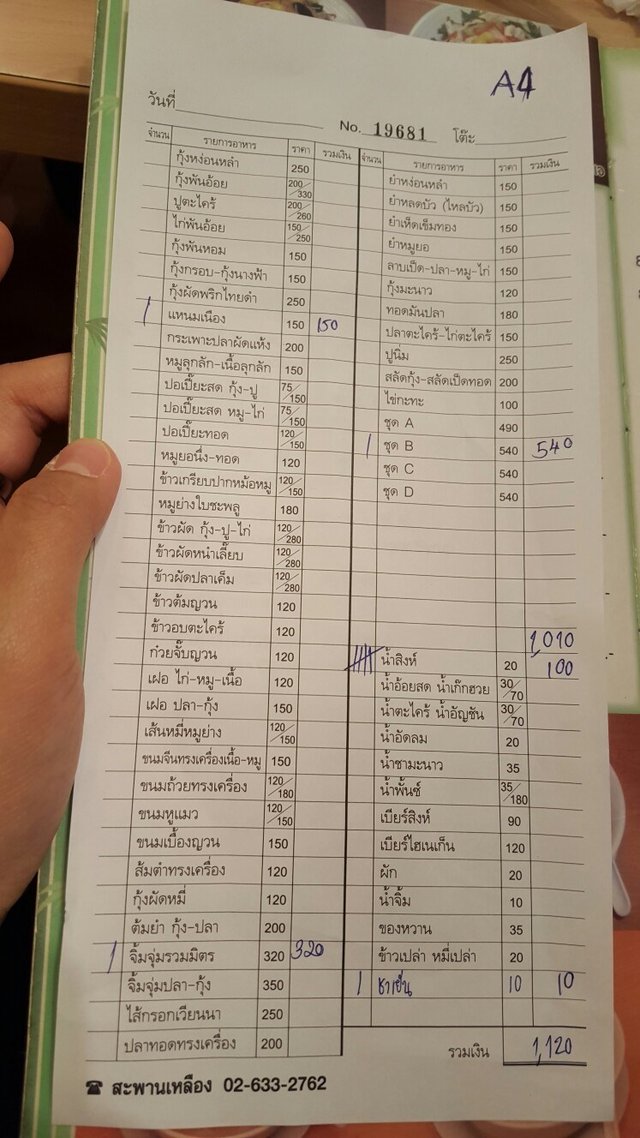 A4
วันที่
No. 19681 โต๊ะ
จำนวน รายการอาหาร ราคา รวมเงิน
กุ้งหง่อนหล่ำ 250
กุ้งพันอ้อย 200/330
ปูตะไคร้ 200/260
ไก่พันอ้อย 150/250
กุ้งพันหอม 150
กุ้งกรอบ-กุ้งนางฟ้า 150
กุ้งผัดพริกไทยดำ 250
1 แหนมเนือง 150 150
กระเพาะปลาผัดแห้ง 200
หมูลุกลัก-เนื้อลุกลัก 150
ปอเปี๊ยะสด กุ้ง-ปู 75/150
ปอเปี๊ยะสด หมู-ไก่ 75/150
ปอเปี๊ยะทอด 120/150
หมูยอนึ่ง-ทอด 120
ข้าวเกรียบปากหม้อหมู 120/150
หมูย่างใบชะพลู 180
ข้าวผัด กุ้ง-ปู-ไก่ 120/280
ข้าวผัดหนำเลี๊ยบ 120/280
ข้าวผัดปลาเค็ม 120/280
ข้าวต้มญวน 120
ข้าวอบตะไคร้ 120
ก๋วยจั๊บญวน 120
เฝอ ไก่-หมู-เนื้อ 120
เฝอ ปลา-กุ้ง 150
เส้นหมี่หมูย่าง 120/150
ขนมจีนทรงเครื่องเนื้อ-หมู 150
ขนมถ้วยทรงเครื่อง 120/180
ขนมหูแมว 120/150
ขนมเบื้องญวน 150
ส้มตำทรงเครื่อง 120
กุ้งผัดหมี่ 120
ต้มยำ กุ้ง-ปลา 200
1 จิ้มจุ่มรวมมิตร 320 320
จิ้มจุ่มปลา-กุ้ง 350
ไส้กรอกเวียนนา 250
ปลาทอดทรงเครื่อง 200
จำนวน รายการอาหาร ราคา รวมเงิน
ยำหง่อนหล่ำ 150
ยำหลดบัว (ไหลบัว) 150
ยำเห็ดเข็มทอง 150
ยำหมูยอ 150
ลาบเป็ด-ปลา-หมู-ไก่ 150
กุ้งมะนาว 120
ทอดมันปลา 180
ปลาตะไคร้-ไก่ตะไคร้ 150
ปูนิ่ม 250
สลัดกุ้ง-สลัดเป็ดทอด 200
ไข่กะทะ 100
ชุด A 490
1 ชุด B 540 540
ชุด C 540
ชุด D 540
1,010
น้ำสิงห์ 20 100
น้ำอ้อยสด น้ำเก๊กฮวย 30/70
น้ำตะไคร้ น้ำอัญชัน 30/70
น้ำอัดลม 20
น้ำชามะนาว 35
น้ำพั้นซ์ 35/180
เบียร์สิงห์ 90
เบียร์ไฮเนเก็น 120
ผัก 20
น้ำจิ้ม 10
ของหวาน 35
ข้าวเปล่า หมี่เปล่า 20
1 ชาเย็น 10 10
รวมเงิน 1,120
☎ สะพานเหลือง 02-633-2762